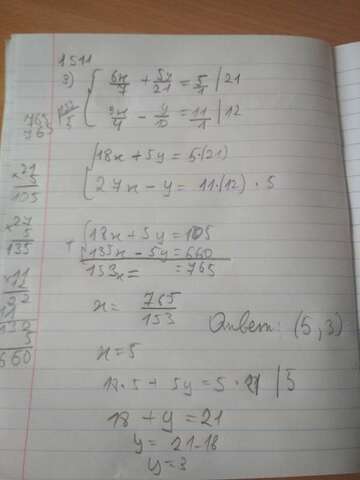 1511
3) { 6x/7 + 5y/21 = 5/1 | 21
{ 9x/4 - y/12 = 11/1 | 12
765
765
{ 18x + 5y = 5·(21)
{ 27x - y = 11·(12) · 5
×21
5
105
×27
5
135
×11
12
22
11
132
5
660
+ { 18x + 5y = 105
{ 135x - 5y = 660
153x = = 765
x = 765/153
Ответ: (5,3)
x = 5
18·5 + 5y = 5·21 | 5
18 + y = 21
y = 21-18
y = 3